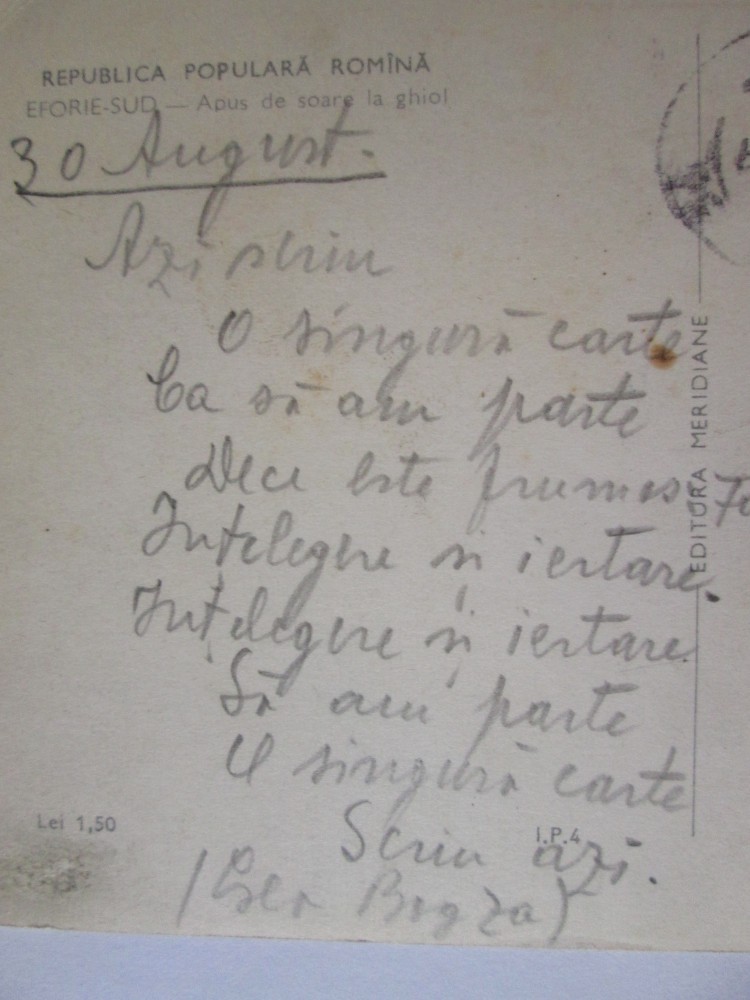 REPUBLICA POPULARĂ ROMÎNĂ
EFORIE-SUD — Apus de soare la ghiol
30 August.
Azi scriu
O singură carte
Ca să am parte
Dece este frumos
Înțelegere și iertare.
Înțelegere și iertare
Să am parte
O singură carte
Scriu azi.
(Geo Bogza)
EDITURA MERIDIANE
Lei 1,50
I.P.4